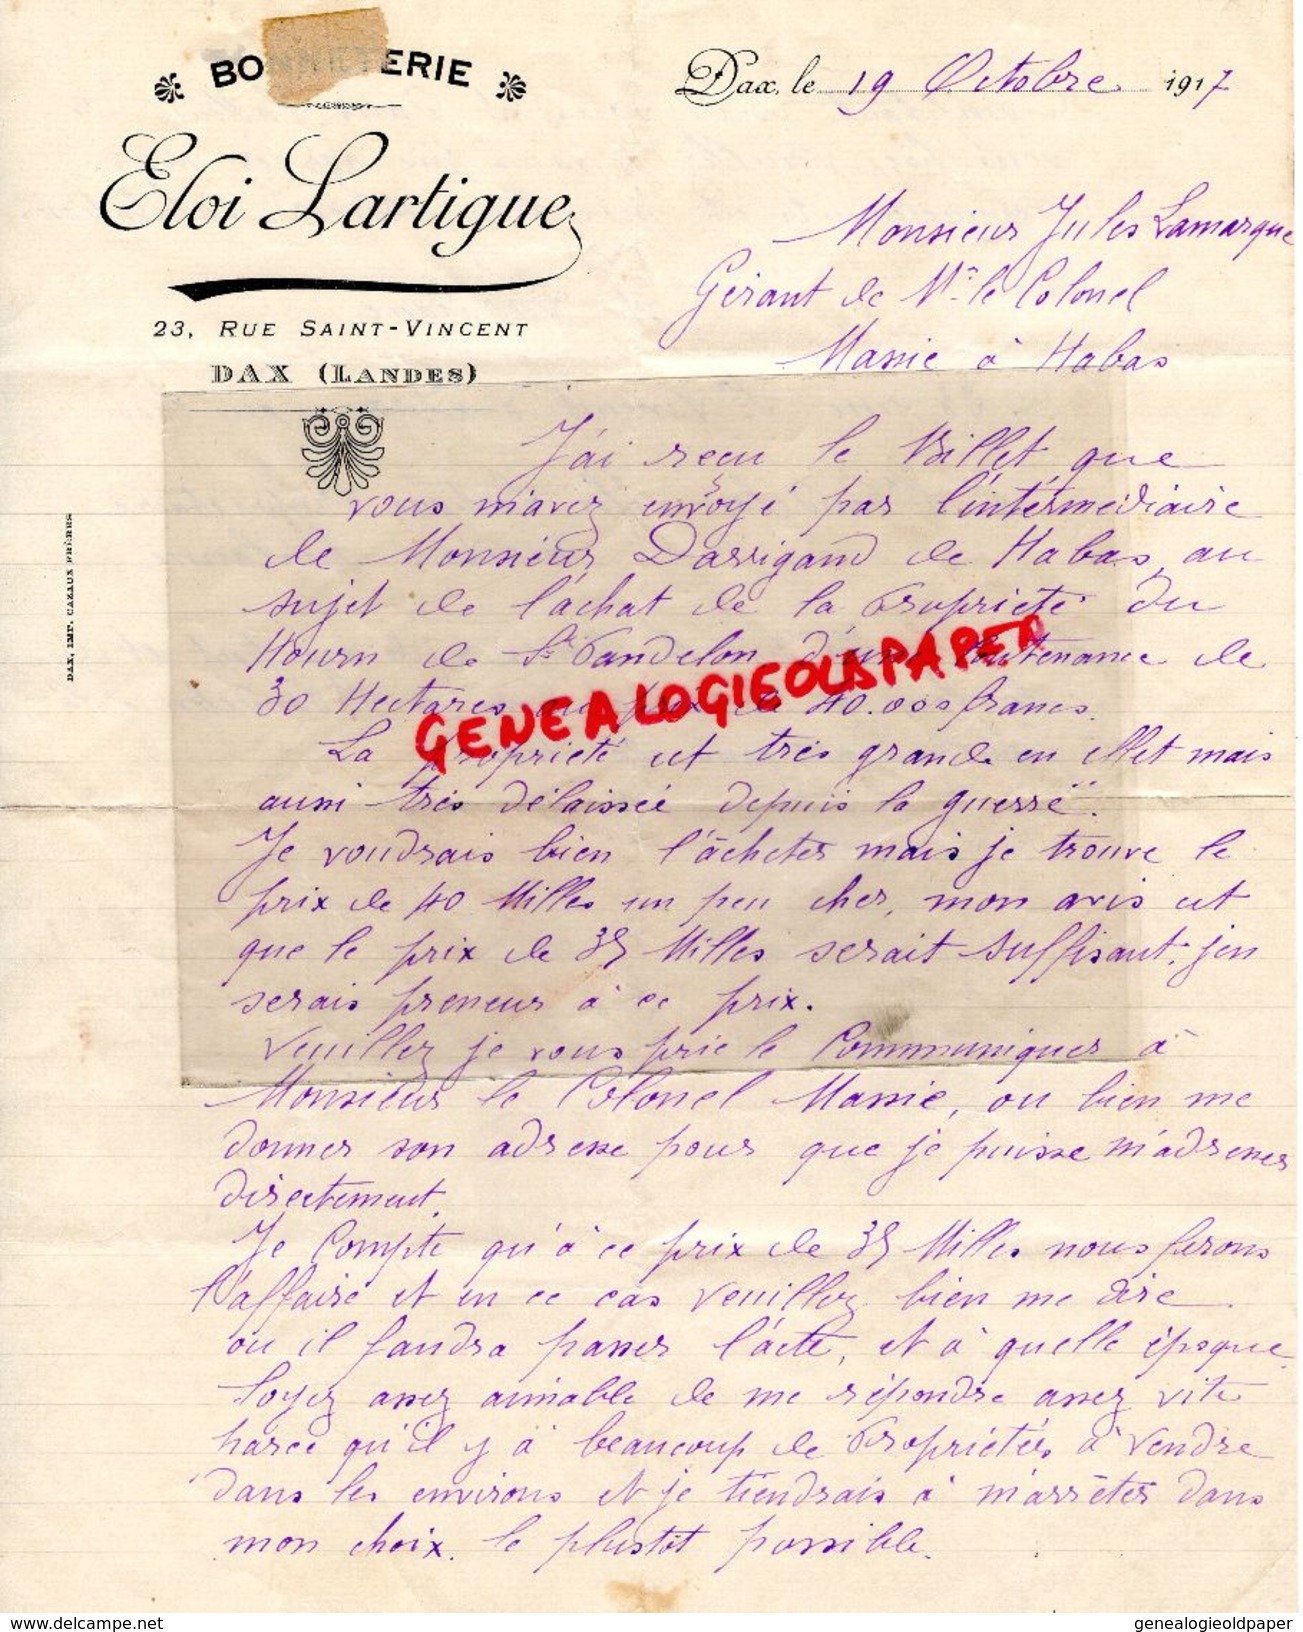 BONNETERIE
Eloi Lartigue
23, RUE SAINT-VINCENT
DAX (LANDES)
DAX, IMP. CAZAUX FRÈRES
Dax, le 19 Octobre 1917
Monsieur Jules Lamarque
Gérant de Mr le Colonel
Massie à Habas
J'ai reçu le Billet que
vous m'avez envoyé par l'intérmédiaire
de Monsieur Darrigand de Habas, au
sujet de l'achat de la Propriété du
Hourn de St Pandelon d'une Contenance de
30 Hectares au prix de 40.000 francs.
La Propriété est très grande en effet mais
aussi très délaissée depuis la guerre.
Je voudrais bien l'acheter mais je trouve le
prix de 40 Milles un peu cher, mon avis est
que le prix de 35 Milles serait suffisant, j'en
serais preneur à ce prix.
Veuillez je vous prie le Communiquer à
Monsieur le Colonel Massie, ou bien me
donner son adresse pour que je puisse m'adresser
directement.
Je Compte qu'à ce prix de 35 Milles nous ferons
l'affaire et en ce cas veuillez bien me dire
ou il faudra passer l'acte, et à quelle époque.
Soyez assez aimable de me répondre assez vite
parce qu'il y à beaucoup de Propriétés à vendre
dans les environs et je tiendrais à m'arrêter dans
mon choix le plustôt possible.
GENEALOGIEOLDPAPER
genealogieoldpaper